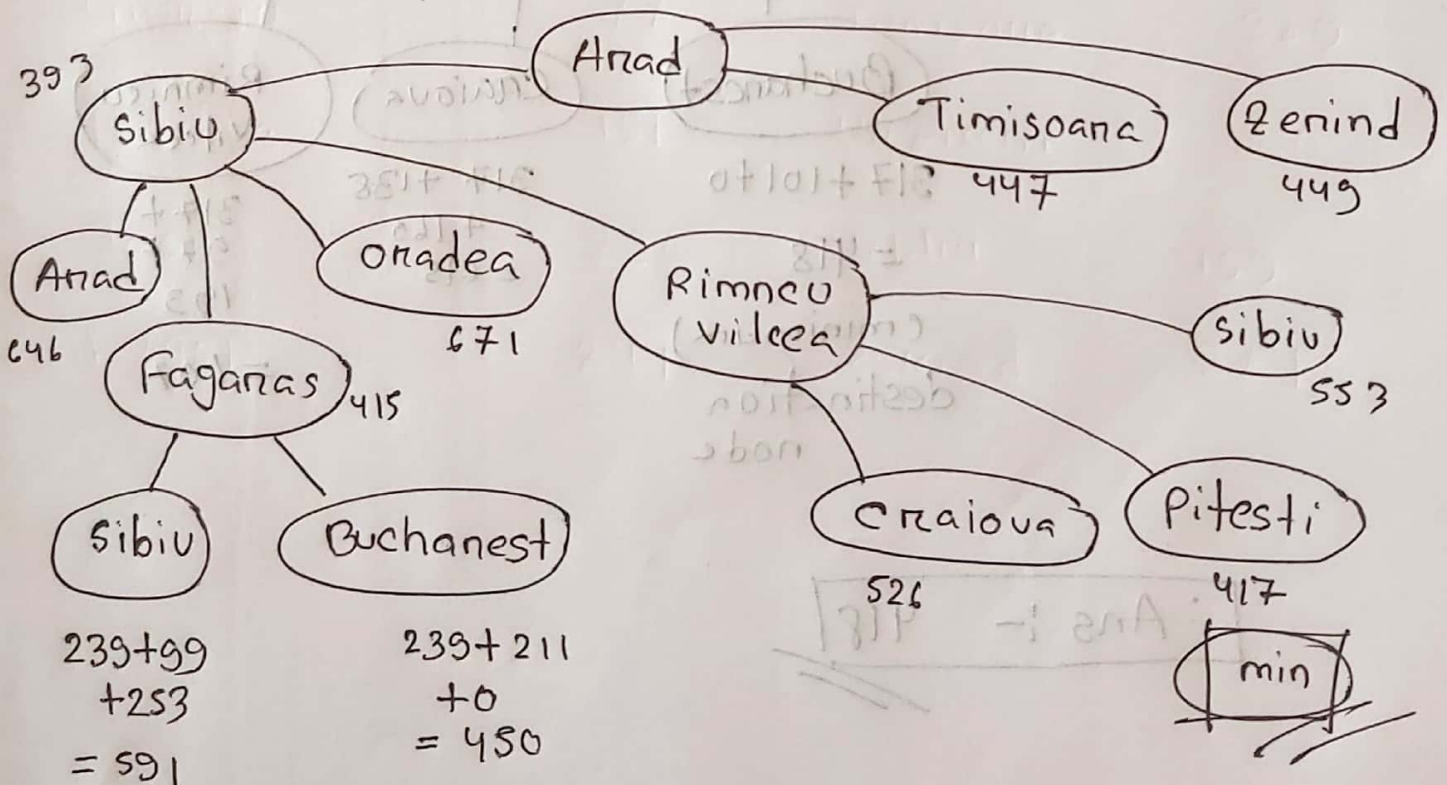 Arad
393
Sibiu
Timisoara
447
Zerind
449
Arad
646
Oradea
671
Rimncu
vilcea
Sibiu
553
Fagaras
415
Sibiu
Bucharest
Craiova
526
Pitesti
417
min
239+99
+253
= 591
239+211
+0
= 450